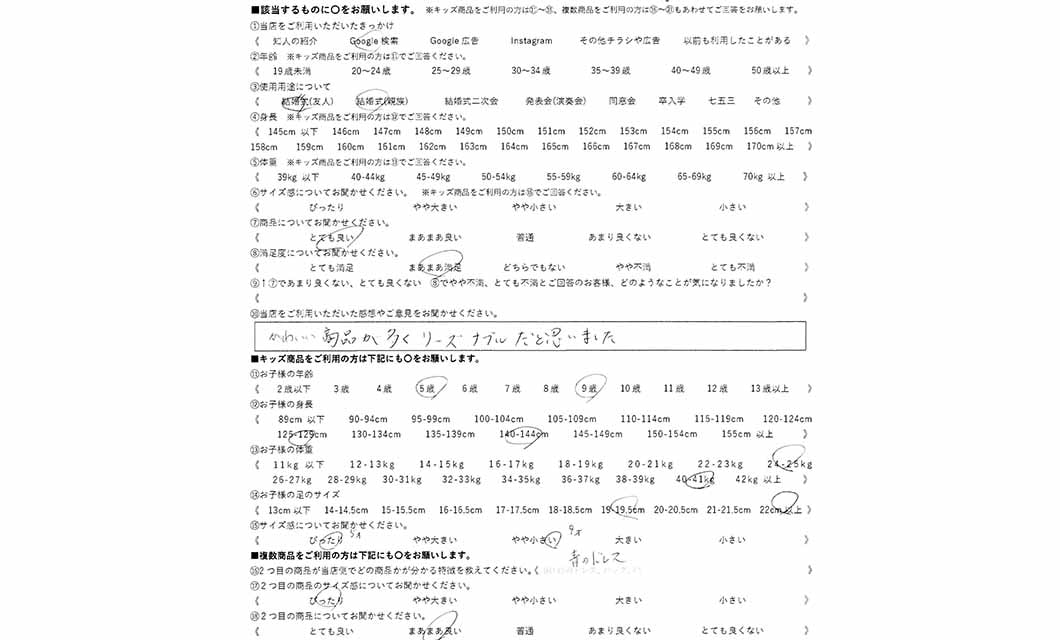 ■該当するものに〇をお願いします。 ※キッズ商品をご利用の方は⑪～⑮、複数商品をご利用の方は⑯～⑳もあわせてご回答をお願いします。
①当店をご利用いただいたきっかけ
《 知人の紹介 Google 検索 Google 広告 Instagram その他チラシや広告 以前も利用したことがある 》
②年齢 ※キッズ商品をご利用の方は⑪でご回答ください。
《 19歳未満 20～24歳 25～29歳 30～34歳 35～39歳 40～49歳 50歳以上 》
③使用用途について
《 結婚式(友人) 結婚式(親族) 結婚式二次会 発表会(演奏会) 同窓会 卒入学 七五三 その他 》
④身長 ※キッズ商品をご利用の方は⑫でご回答ください。
《 145cm 以下 146cm 147cm 148cm 149cm 150cm 151cm 152cm 153cm 154cm 155cm 156cm 157cm
158cm 159cm 160cm 161cm 162cm 163cm 164cm 165cm 166cm 167cm 168cm 169cm 170cm以上 》
⑤体重 ※キッズ商品をご利用の方は⑬でご回答ください。
《 39kg 以下 40-44kg 45-49kg 50-54kg 55-59kg 60-64kg 65-69kg 70kg 以上 》
⑥サイズ感についてお聞かせください。 ※キッズ商品をご利用の方は⑮でご回答ください。
《 ぴったり やや大きい やや小さい 大きい 小さい 》
⑦商品についてお聞かせください。
《 とても良い まあまあ良い 普通 あまり良くない とても良くない 》
⑧満足度についてお聞かせください。
《 とても満足 まあまあ満足 どちらでもない やや不満 とても不満 》
⑨⑦であまり良くない、とても良くない ⑧でやや不満、とても不満とご回答のお客様、どのようなことが気になりましたか？
《 》
⑩当店をご利用いただいた感想やご意見をお聞かせください。
かわいい商品が多くリーズナブルだと思いました
■キッズ商品をご利用の方は下記にも〇をお願いします。
⑪お子様の年齢
《 2歳以下 3歳 4歳 5歳 6歳 7歳 8歳 9歳 10歳 11歳 12歳 13歳以上 》
⑫お子様の身長
《 89cm 以下 90-94cm 95-99cm 100-104cm 105-109cm 110-114cm 115-119cm 120-124cm
125-129cm 130-134cm 135-139cm 140-144cm 145-149cm 150-154cm 155cm 以上 》
⑬お子様の体重
《 11kg 以下 12-13kg 14-15kg 16-17kg 18-19kg 20-21kg 22-23kg 24-25kg
26-27kg 28-29kg 30-31kg 32-33kg 34-35kg 36-37kg 38-39kg 40-41kg 42kg 以上 》
⑭お子様の足のサイズ
《 13cm以下 14-14.5cm 15-15.5cm 16-16.5cm 17-17.5cm 18-18.5cm 19-19.5cm 20-20.5cm 21-21.5cm 22cm以上 》
⑮サイズ感についてお聞かせください。
《 ぴったり 5才 やや大きい やや小さい 9才 大きい 小さい 》
■複数商品をご利用の方は下記にも〇をお願いします。
青のドレス
⑯2つ目の商品が当店側でどの商品かが分かる特徴を教えてください。《 》
⑰2つ目の商品のサイズ感についてお聞かせください。
《 ぴったり やや大きい やや小さい 大きい 小さい 》
⑱2つ目の商品についてお聞かせください。
《 とても良い まあまあ良い 普通 あまり良くない とても良くない 》